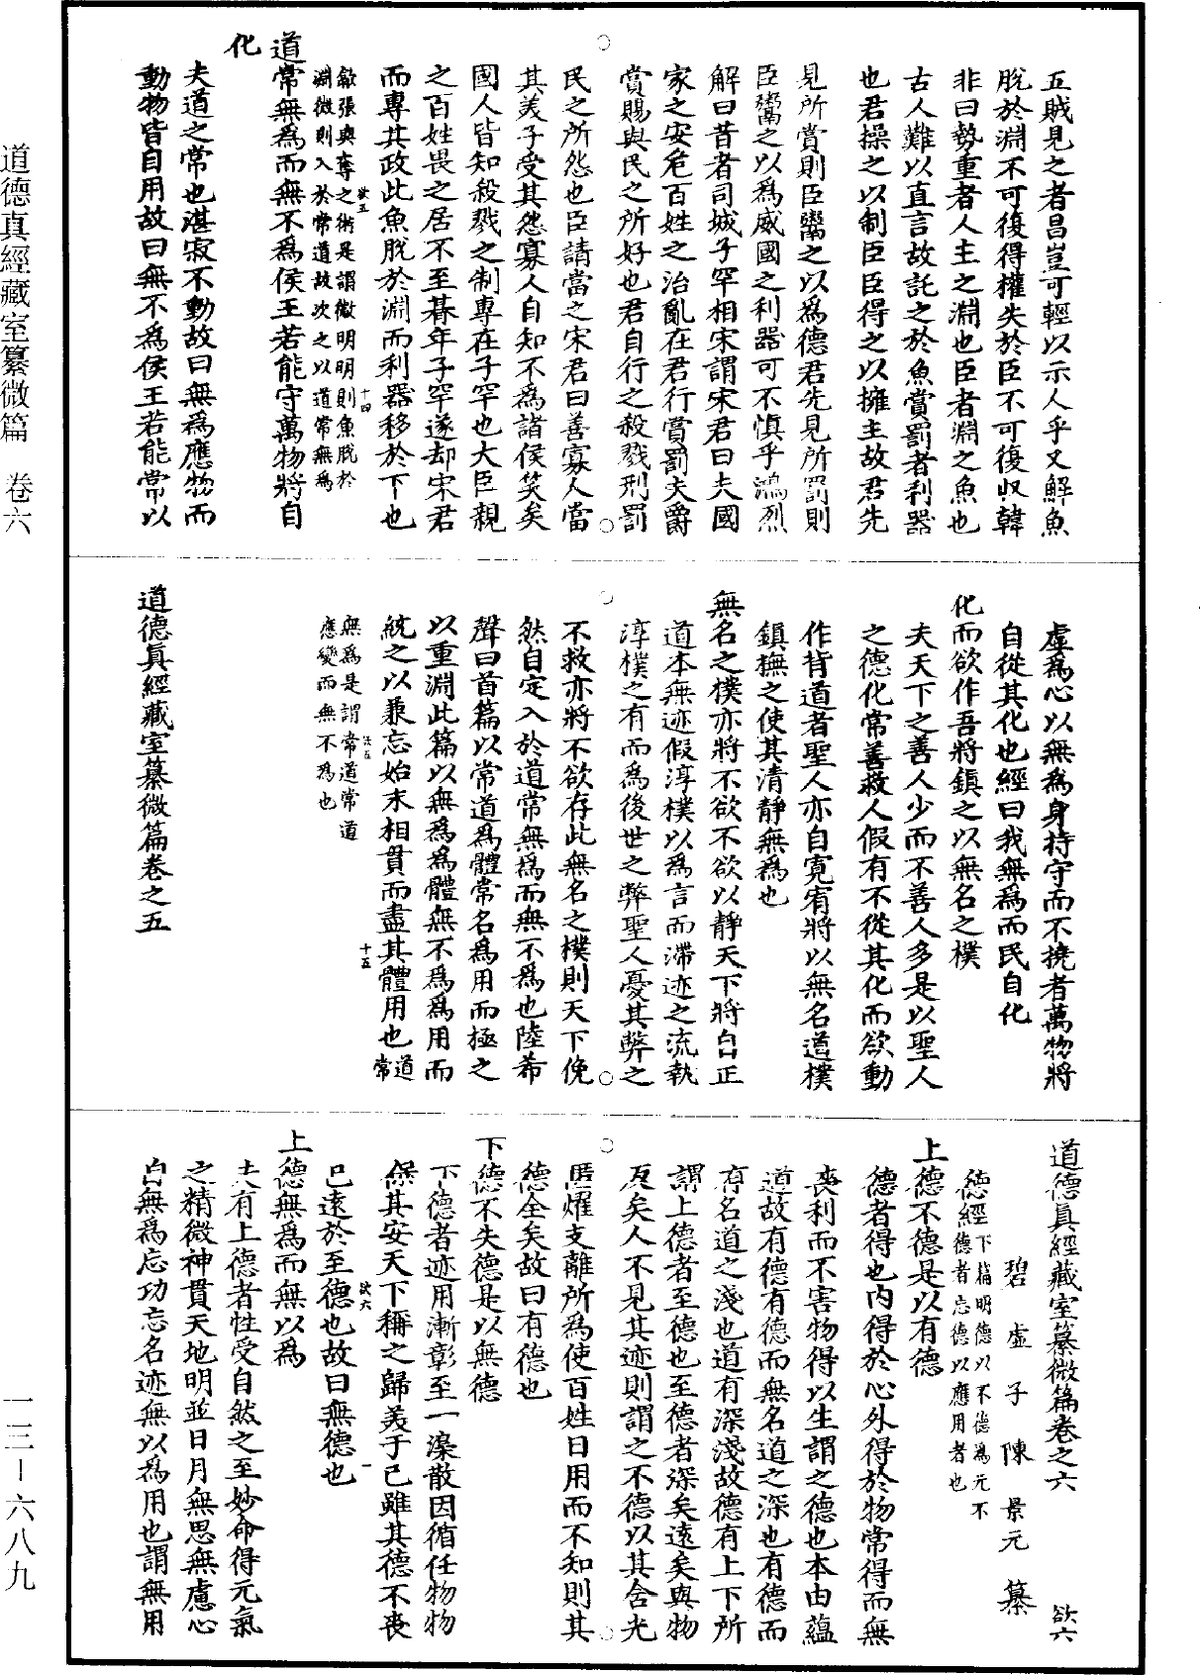 五賊見之者昌豈可輕以示人乎又解魚
脫於淵不可復得權失於臣不可復収韓
非曰勢重者人主之淵也臣者淵之魚也
古人難以直言故託之於魚賞罰者利器
也君操之以制臣臣得之以擁主故君先
見所賞則臣鬻之以爲德君先見所罰則
臣鬻之以爲威國之利器可不慎乎鴻烈
解曰昔者司城子罕相宋謂宋君曰夫國
家之安危百姓之治亂在君行賞罰夫爵
賞賜與民之所好也君自行之殺戮刑罰
民之所怨也臣請當之宋君曰善寡人當
其美子受其怨寡人自知不爲諸侯笑矣
國人皆知殺戮之制專在子罕也大臣親
之百姓畏之居不至朞年子罕遂却宋君
而專其政此魚脫於淵而利器移於下也
歙張與奪之術是謂微明明則魚脫於
淵微則入於常道故次之以道常無爲
欲五
十四
道常無爲而無不爲侯王若能守萬物將自
化
夫道之常也湛寂不動故曰無爲應物而
動物皆自用故曰無不爲侯王若能常以
虛爲心以無爲身持守而不撓者萬物將
自從其化也經曰我無爲而民自化
化而欲作吾將鎮之以無名之樸
夫天下之善人少而不善人多是以聖人
之德化常善救人假有不從其化而欲動
作背道者聖人亦自寬宥將以無名道樸
鎮撫之使其清靜無爲也
無名之樸亦將不欲不欲以靜天下將自正
道本無迹假淳樸以爲言而滯迹之流執
淳樸之有而爲後世之弊聖人憂其弊之
不救亦將不欲存此無名之樸則天下俛
然自定入於道常無爲而無不爲也陸希
聲曰首篇以常道爲體常名爲用而極之
以重淵此篇以無爲爲體無不爲爲用而
統之以兼忘始末相貫而盡其體用也道
常
無爲是謂常道常道
應變而無不爲也
欲五
十五
道德真經藏室纂微篇卷之五
道德真經藏室纂微篇卷之六
欲六
碧虛子陳景元纂
德經下篇明德以不德爲元不
德者忘德以應用者也
上德不德是以有德
德者得也內得於心外得於物常得而無
喪利而不害物得以生謂之德也本由蘊
道故有德有德而無名道之深也有德而
有名道之淺也道有深淺故德有上下所
謂上德者至德也至德者深矣遠矣與物
反矣人不見其迹則謂之不德以其含光
匿燿支離所爲使百姓日用而不知則其
德全矣故曰有德也
下德不失德是以無德
下德者迹用漸彰至一澆散因循任物物
保其安天下稱之歸美于己雖其德不喪
已遠於至德也故曰無德也
欲六
一
上德無爲而無以爲
夫有上德者性受自然之至妙命得元氣
之精微神貫天地明並日月無思無慮心
自無爲忘功忘名迹無以爲用也謂無用
道德真經藏室纂微篇 卷六
一三－六八九